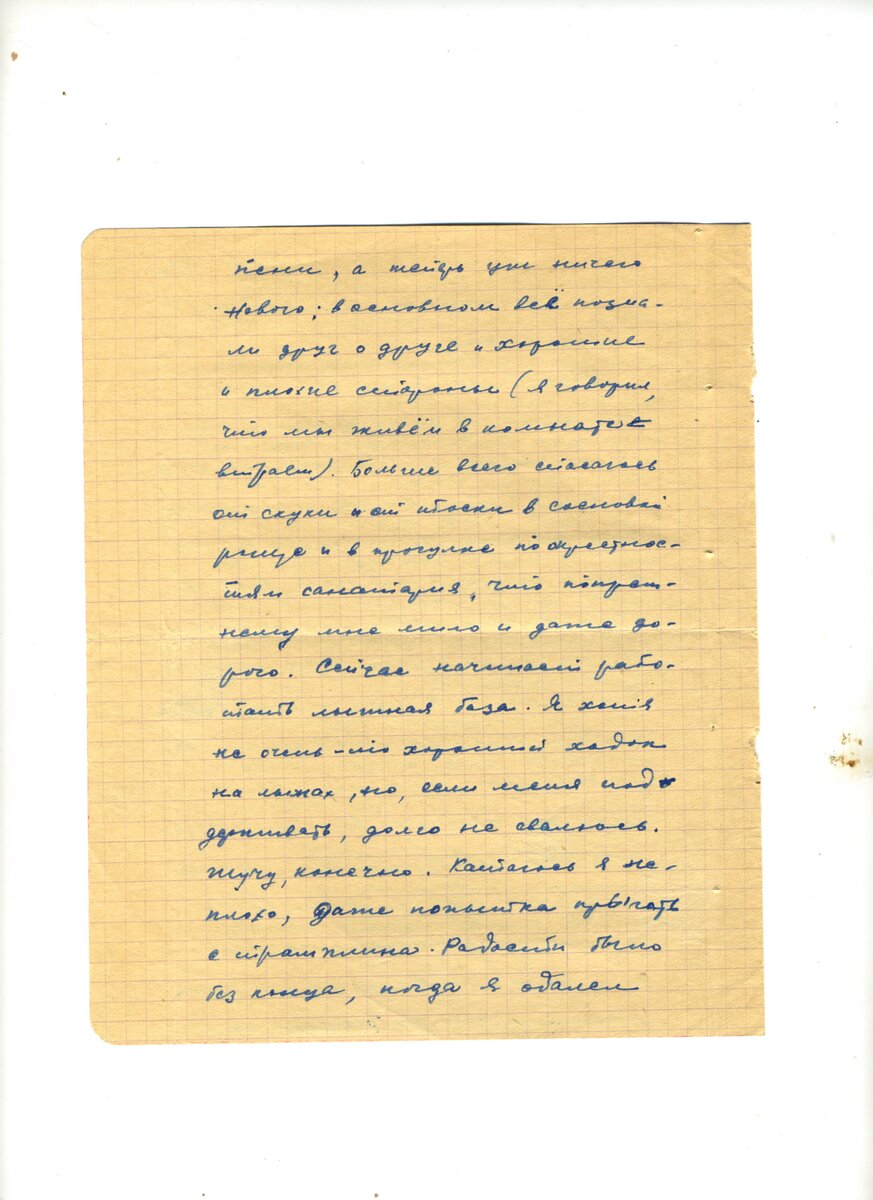 песни, а теперь уж ничего
нового; в основном всё позна-
ли друг о друге и хорошие
и плохие стороны (я говорил,
что мы живём в комнате
втроём). Больше всего спасаюсь
от скуки и от тоски в сосновой
роще и в прогулке по окрестнос-
тям санатория, что попреж-
нему мне мило и даже до-
рого. Сейчас начинает рабо-
тать лыжная база. Я хотя
не очень-то хороший ходок
на лыжах, но, если меня под
держивать, долго не свалюсь.
Шучу, конечно. Катаюсь я не-
плохо, даже попытка прыгать
с трамплина. Радости было
без конца, когда я одолел